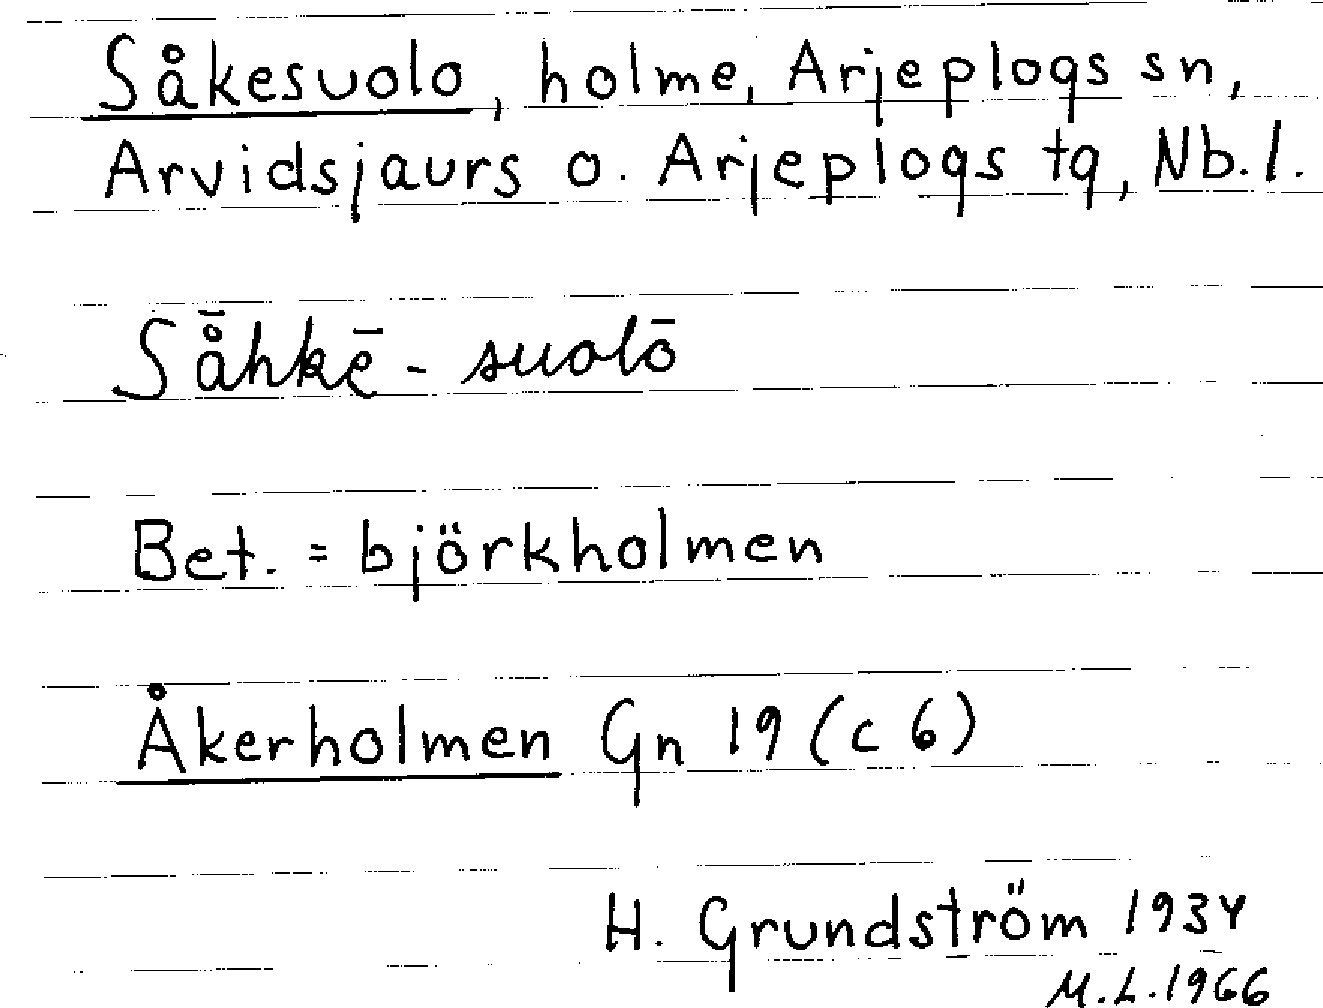 Såkesuolo, holme, Arjeplogs sn,
Arvidsjaurs o. Arjeplogs tg, Nb.l.
Så̄hkē-suolō
Bet. = björkholmen
Åkerholmen Gn 19 (c 6)
H. Grundström 1934
M.L.1966